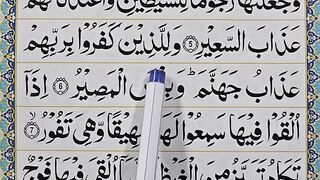 وَجَعَلْنٰهَا رُجُوْمًا لِّلشَّيٰطِيْنِ وَاَعْتَدْنَا لَهُمْ
عَذَابَ السَّعِيْرِ ۝5 وَلِلَّذِيْنَ كَفَرُوْا بِرَبِّهِمْ
عَذَابُ جَهَنَّمَ ؕ وَبِئْسَ الْمَصِيْرُ ۝6 اِذَآ
اُلْقُوْا فِيْهَا سَمِعُوْا لَهَا شَهِيْقًا وَّهِيَ تَفُوْرُ ۝7
تَكَادُ تَمَيَّزُ مِنَ الْغَيْظِ اُلْقِيَ فِيْهَا فَوْجٌ